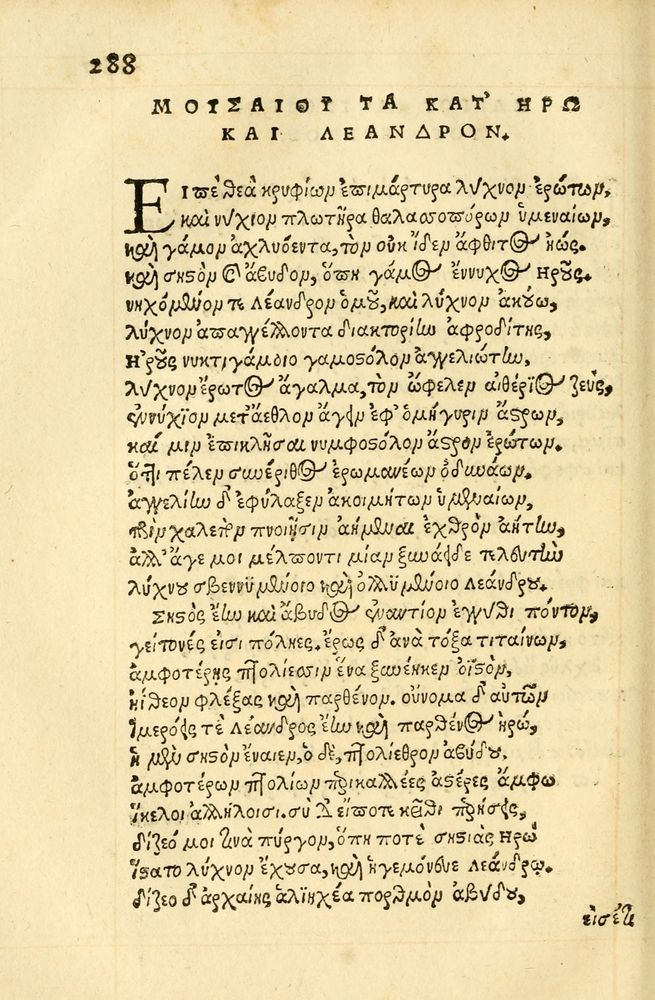 288
ΜΟΥΣΑΙΟΥ ΤΑ ΚΑΘ' ΗΡΩ
ΚΑΙ ΛΕΑΝΔΡΟΝ.
Εἰπὲ θεὰ κρυφίων ἐπιμάρτυρα λύχνον ἐρώτων,
καὶ νύχιον πλωτῆρα θαλασσοπόρων ὑμεναίων,
καὶ γάμον ἀχλυόεντα, τὸν οὐκ ἴδεν ἄφθιτος ἠώς.
καὶ σηστὸν καὶ ἄβυδον, ὅπη γάμος ἔννυχος Ηροῦς.
νηχόμενόν τε Λέανδρον ὁμοῦ, καὶ λύχνον ἀκούω,
λύχνον ἀπαγγέλλοντα διακτορίην ἀφροδίτης,
Ηροῦς νυκτιγάμοιο γαμοστόλον ἀγγελιώτην,
λύχνον ἔρωτος ἄγαλμα, τὸν ὤφελεν αἰθέριος ζεύς,
ἐννύχιον μετ' ἄεθλον ἄγειν ἐφ' ὁμήγυριν ἄστρων,
καί μιν ἐπικλῆσαι νυμφοστόλον ἄστρον ἐρώτων.
ὅτι πέλεν συνέριθος ἐρωμανέων ὀδυνάων.
ἀγγελίην δ' ἐφύλαξεν ἀκοιμήτων ὑμεναίων,
πρὶν χαλεπὸν πνοιῇσιν ἀήμεναι ἐχθρὸν ἀήτην,
ἀλλ' ἄγε μοι μέλποντι μίαν ξυνάειδε τελευτὴν
λύχνου σβεννυμένοιο καὶ ὀλλυμένοιο Λεάνδρου.
Σηστὸς ἔην καὶ ἄβυδος ἐναντίον ἐγγύθι πόντου,
γείτονές εἰσι πόληες. ἔρως δ' ἀνὰ τόξα τιταίνων,
ἀμφοτέρῃς πτολίεσσιν ἕνα ξυνέηκεν ὀϊστόν,
ἠΐθεον φλέξας καὶ παρθένον. οὔνομα δ' αὐτῶν
ἱμερόεις τὲ Λέανδρος ἔην καὶ παρθένος ἡρώ,
ἡ μὲν σηστὸν ἔναιεν, ὁ δὲ, πτολίεθρον ἀβύδου.
ἀμφοτέρων πτολίων περικαλλέες ἀστέρες ἄμφω
ἴκελοι ἀλλήλοισι. σὺ δ' εἴποτε κεῖθι περήσεις,
δίζεό μοι τινὰ πύργον, ὅπη ποτὲ σηστιὰς Ηρώ
ἵστατο λύχνον ἔχουσα, καὶ ἡγεμόνευε Λεάνδρῳ.
δίζεο δ' ἀρχαίης ἁλιηχέα πορθμὸν ἀβύδου,
εἰσέτι